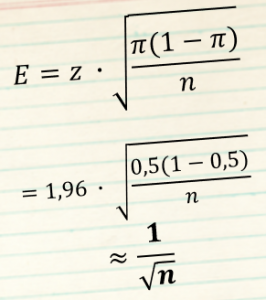 E = z · √(π(1 − π)/n)
= 1,96 · √(0,5(1 − 0,5)/n)
≈ 1/√n